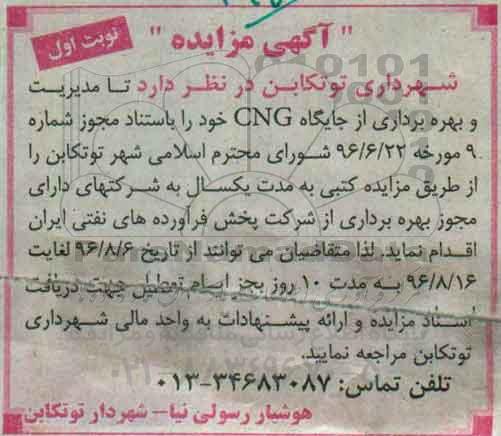 نوبت اول
" آگهی مزایده "
شهرداری توتکابن در نظر دارد تا مدیریت
و بهره برداری از جایگاه CNG خود را باستناد مجوز شماره
۹ مورخه ۹۶/۶/۲۲ شورای محترم اسلامی شهر توتکابن را
از طریق مزایده کتبی به مدت یکسال به شرکتهای دارای
مجوز بهره برداری از شرکت پخش فرآورده های نفتی ایران
اقدام نماید. لذا متقاضیان می توانند از تاریخ ۹۶/۸/۶ لغایت
۹۶/۸/۱۶ به مدت ۱۰ روز بجز ایام تعطیل جهت دریافت
اسناد مزایده و ارائه پیشنهادات به واحد مالی شهرداری
توتکابن مراجعه نمایید.
تلفن تماس: ۳۴۶۸۳۰۸۷-۰۱۳
هوشیار رسولی نیا- شهردار توتکابن